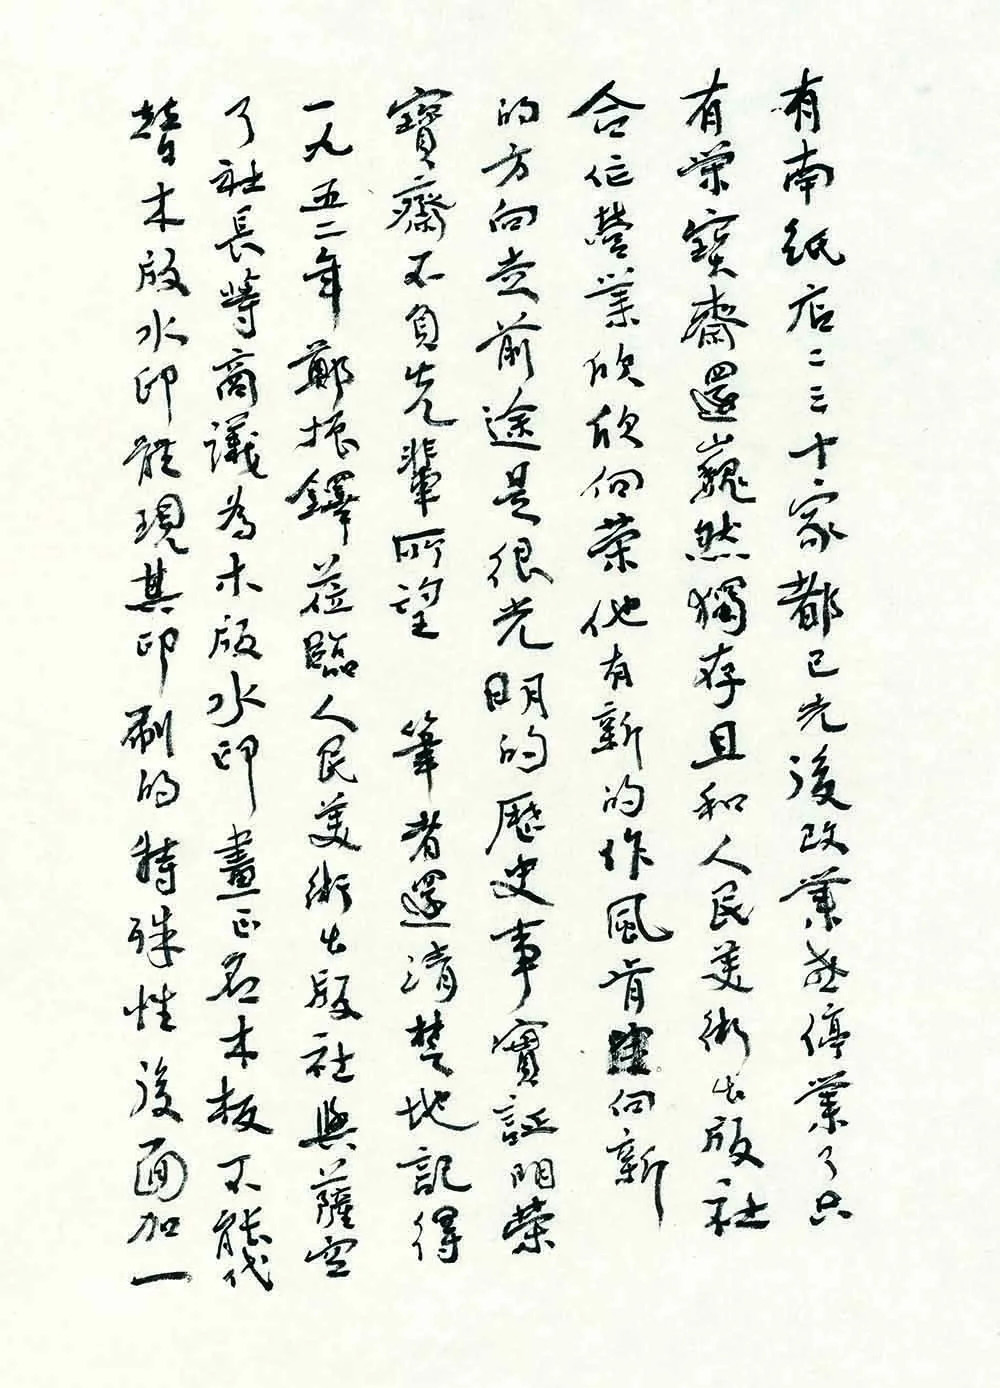 有南纸店二三十家都已先後改業或停業了只
有荣寶齋還巍然獨存且和人民美術出版社
合作營業欣欣向荣他有新的作風肯向新
的方向走前途是很光明的歷史事實証明榮
寶齋不負先輩所望　筆者還清楚地記得
一九五二年鄭振鐸莅臨人民美術出版社與薩空
了社長等商議為木版水印畫正名木板不能代
替木版水印能現其印刷的特殊性後面加一